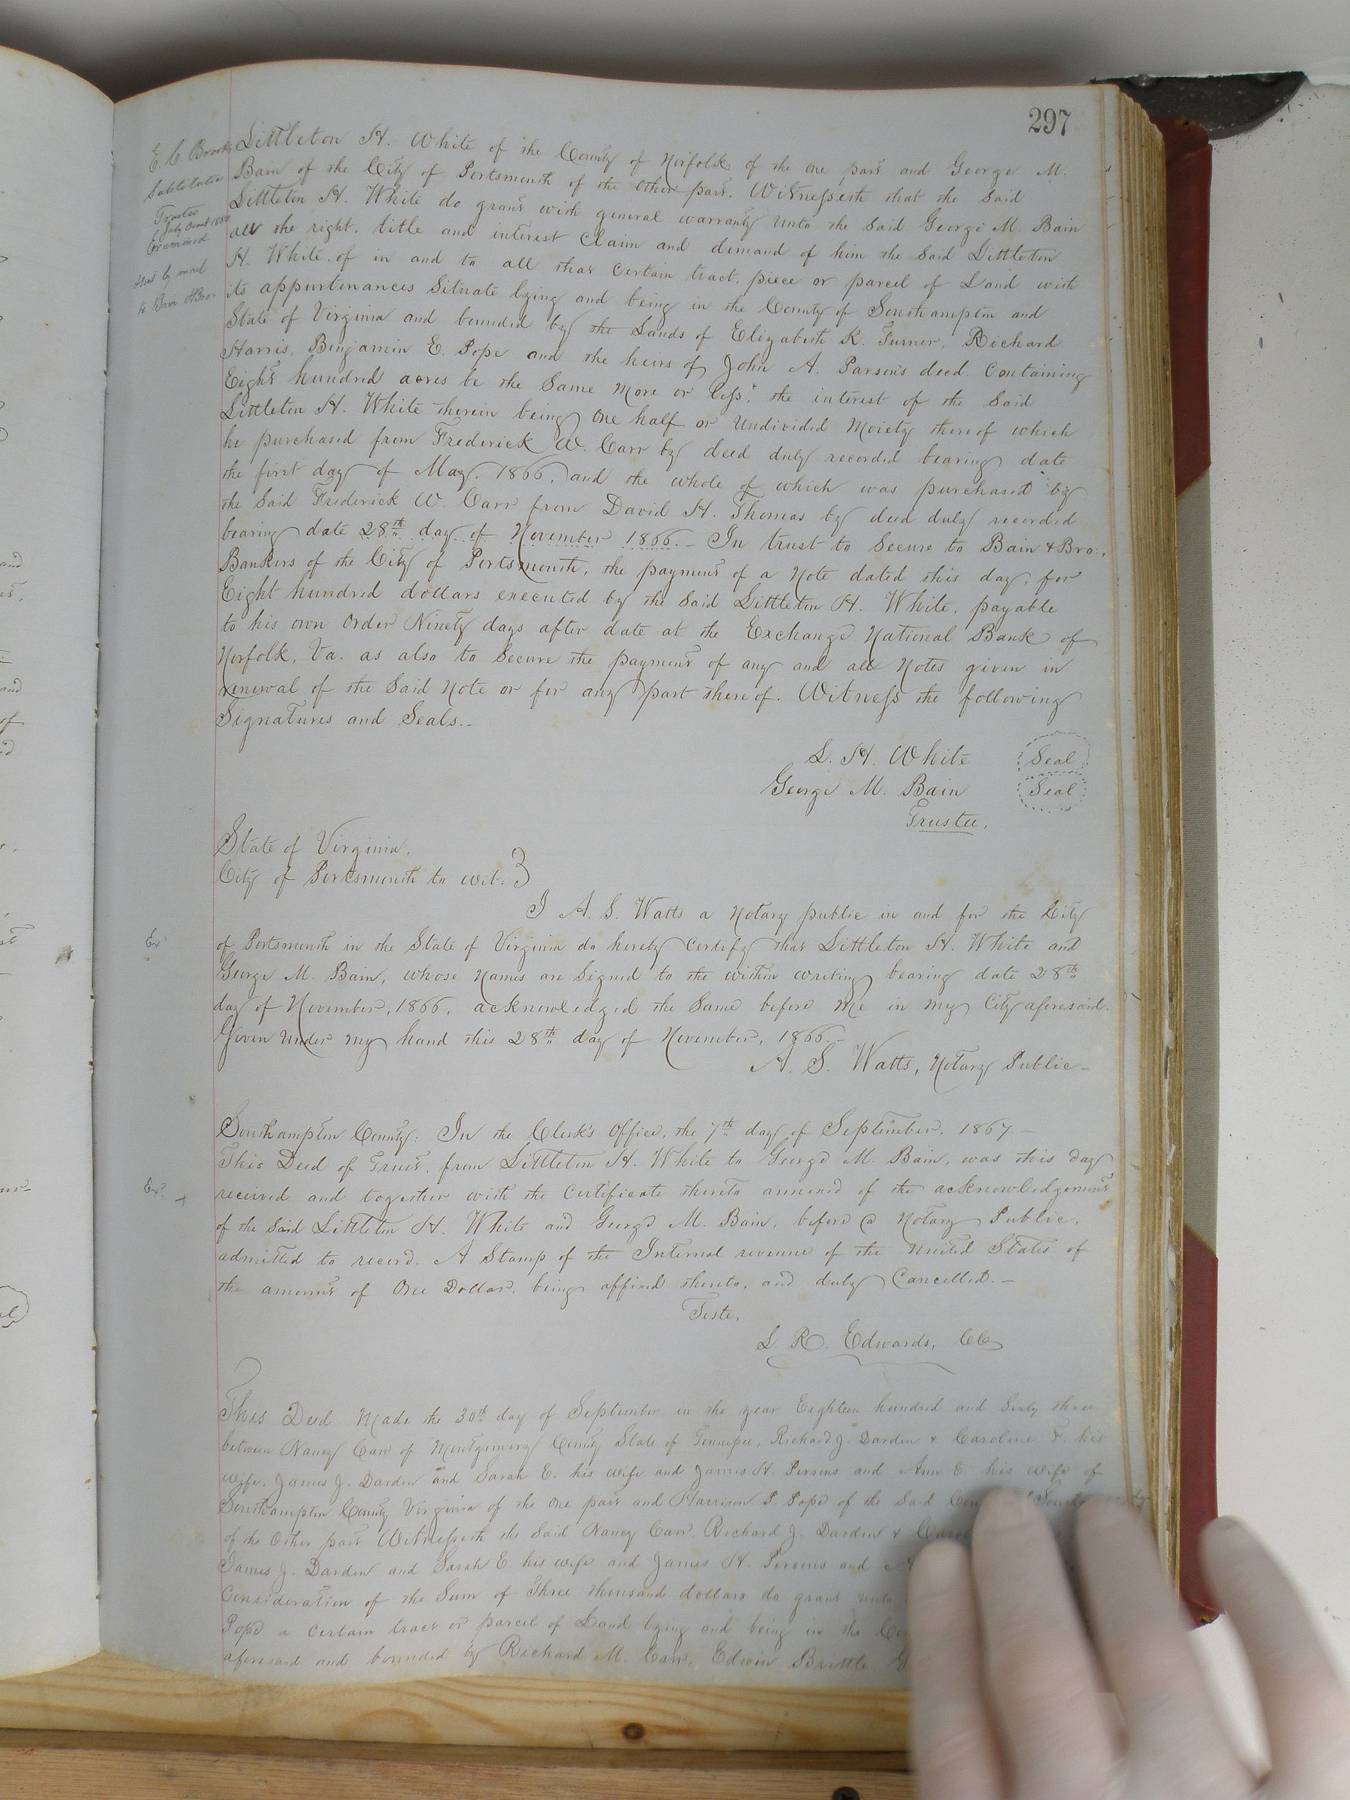 297
E. C. Brooks
Substitute
Trustee
Examined
sent by mail
to Bain & Bro.
Littleton H. White of the County of Norfolk of the one part and George M.
Bain of the City of Portsmouth of the other part. Witnesseth that the Said
Littleton H. White do grant with general warranty unto the Said George M. Bain
all the right, title and interest Claim and demand of him the Said Littleton
H. White of in and to all that Certain tract, piece or parcel of Land with
its appurtinances Situate lying and being in the County of Southampton and
State of Virginia and bounded by the Lands of Elizabeth R. Turner, Richard
Harris, Benjamin E. Pope and the heirs of John A. Parsons deed. Containing
Eight hundred acres be the Same More or less; the interest of the Said
Littleton H. White therein being One half or Undivided Moiety thereof which
he purchased from Frederick W. Carr by deed duly recorded bearing date
the first day of May, 1866, and the whole of which was purchased by
the Said Frederick W. Carr from David H. Thomas by deed duly recorded
bearing date 28th day of November 1866.- In trust to Secure to Bain & Bro.,
Bankers of the City of Portsmouth, the payment of a Note dated this day, for
Eight hundred dollars executed by the Said Littleton H. White, payable
to his own Order Ninety days after date at the Exchange National Bank of
Norfolk, Va. as also to Secure the payment of any and all Notes given in
renewal of the Said Note or for any part thereof. Witness the following
Signatures and Seals.-
L. H. White Seal
George M. Bain Seal
Trustee.
State of Virginia,
City of Portsmouth to wit:
I A. S. Watts a Notary public in and for the City
of Portsmouth in the State of Virginia do hereby Certify that Littleton H. White and
George M. Bain, whose Names are Signed to the within writing bearing date 28th
day of November, 1866, acknowledged the Same before Me in my City aforesaid.
Given Under My hand this 28th day of November, 1866.-
A. S. Watts, Notary Public-
Southampton County: In the Clerk's Office, the 7th day of September, 1867.-
This Deed of Trust, from Littleton H. White to George M. Bain, was this day
received and together with the Certificate thereto annexed of the acknowledgement
of the said Littleton H. White and George M. Bain, before a Notary Public,
admitted to record. A Stamp of the Internal revenue of the United States of
the amount of One Dollar, being affixed thereto, and duly Cancelled.-
Teste,
L. R. Edwards, CC
This Deed Made the 30th day of September in the year Eighteen hundred and Sixty three
between Nancy Carr of Montgomery County State of Tennessee, Richard J. Darden & Caroline F. his
wife, James J. Darden and Sarah E. his wife and James H. Persons and Ann E. his wife of
Southampton County Virginia of the one part and Harrison P. Pope of the Said
of the Other part Witnesseth the Said Nancy Carr, Richard J. Darden &
James J. Darden and Sarah E his wife and James H. Persons and
Consideration of the Sum of Three thousand dollars do grant unto
Pope a Certain tract or parcel of Land lying and being in the
aforesaid and bounded by Richard M. Carr, Edwin Brittle